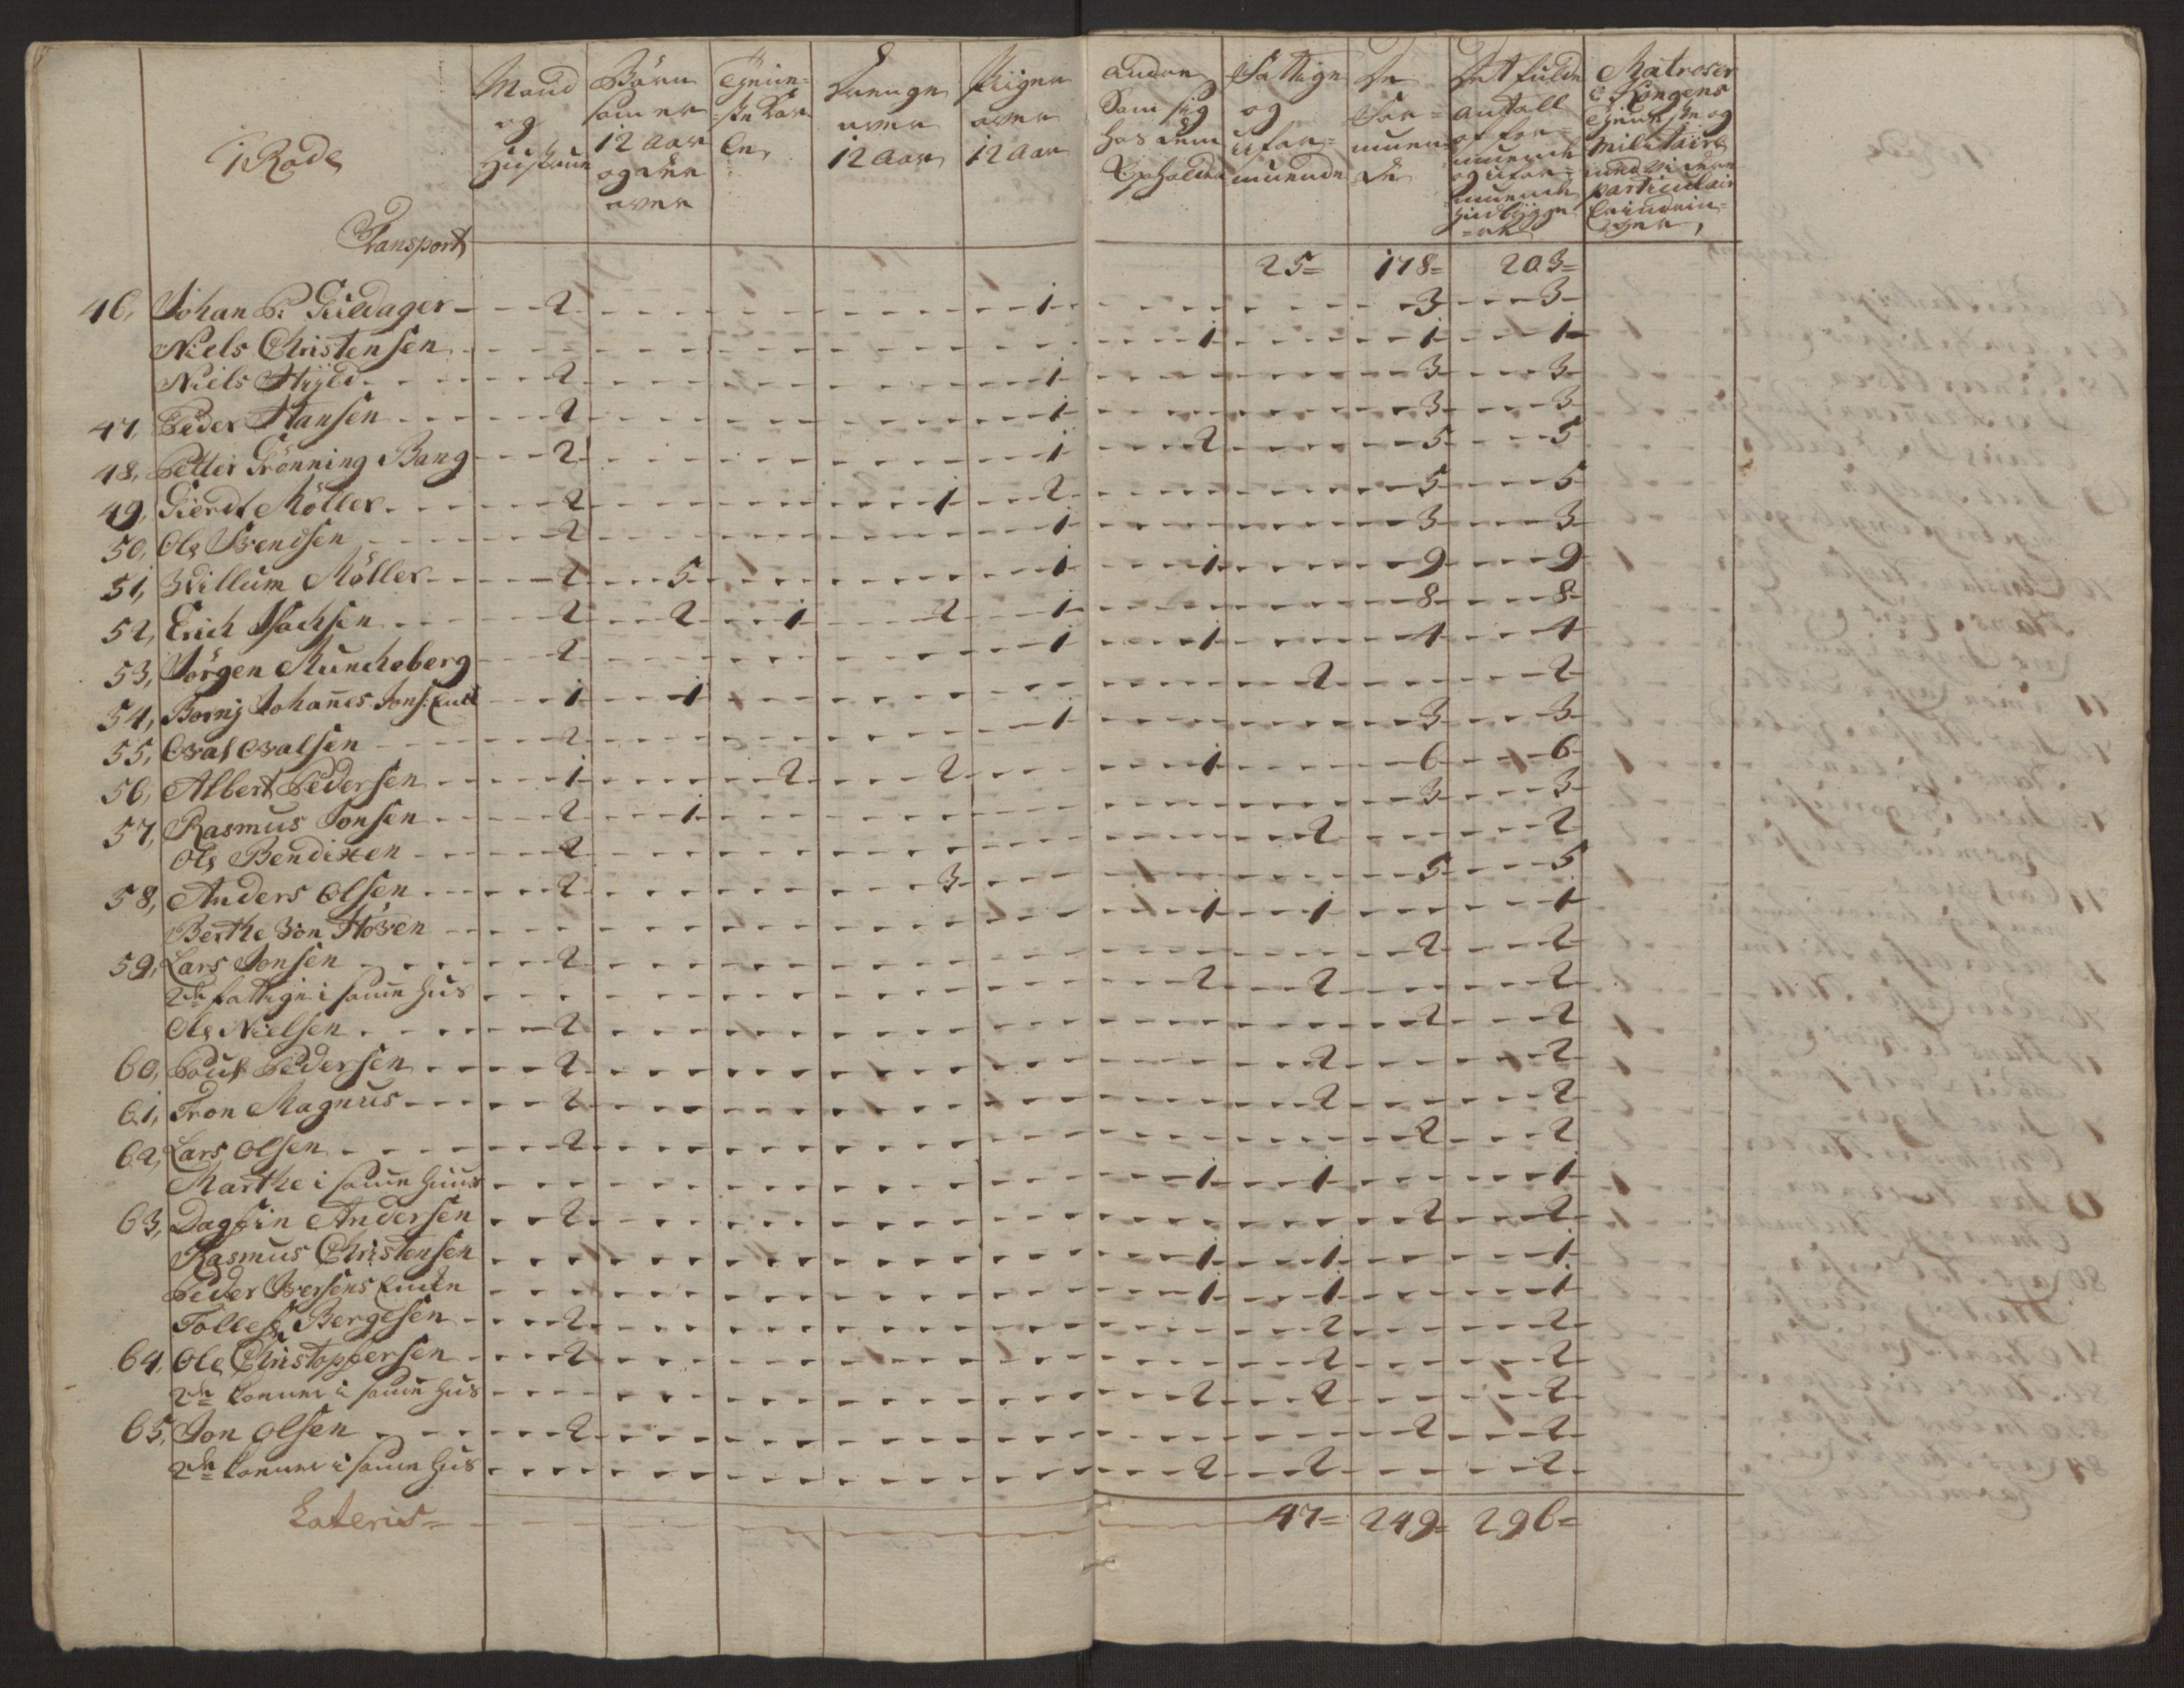 1 Rode
Mand og Hustrue
Børn som er 12 aar og der over
Tjenneste Karle,
Drenge over 12 aar
Piiger over 12 aar
andre Som sig hos dem Opholder
Fattige og uformuende
De Formuende
Det fulde antall af formuende og uformuende Indbyggere
Matroser i Kongens Tjeneste og Militaire med videre particulair Erindringer,
Transport 25= 178= 203=
46, Johan P. Guldager 2 1 3 3
Niels Christensen 1 1 1
Niels Hyld 2 1 3 3
47, Peder Hansen 2 1 3 3
48, Petter Grönning Bang 2 1 2 5 5
49, Gierdt Möller 2 1 2 5 5
50, Ole Svendsen 2 1 3 3
51, Willum Möller 2 5 1 1 9 9
52, Erich Isachsen 2 2 1 2 1 8 8
53, Jörgen Muncheberg 2 1 1 4 4
54, Bornj Johanes Jons: Enke 1 1 2 2
55, Eval Evalsen 2 1 3 3
56, Albert Pedersen 1 2 2 1 6 6
57, Rasmus Jonsen 2 1 3 3
Ole Bendixen 2 2 2
58, Anders Olsen 2 3 5 5
Berthe Von Hoven 1 1 1
59, Lars Jonsen 2 2 2
2de fattige i samme Hus 2 2 2
Ole Nielsen 2 2 2
60, Poul Pedersen 2 2 2
61, Tron Magnus 2 2 2
62, Lars Olsen 2 2 2
Marthe i samme Huus 1 1 1
63, Dagfin Andersen 2 2 2
Rasmus Christensen 1 1 1
Peder Iversens Enke 1 1 1
Tollef Bergesen 2 2 2
64, Ole Christophersen 2 2 2
2de konner i samme Hus 2 2 2
65, Jon Olsen 2 2 2
2de konner i samme Hus 2 2 2
Lateris= 47= 249= 296=